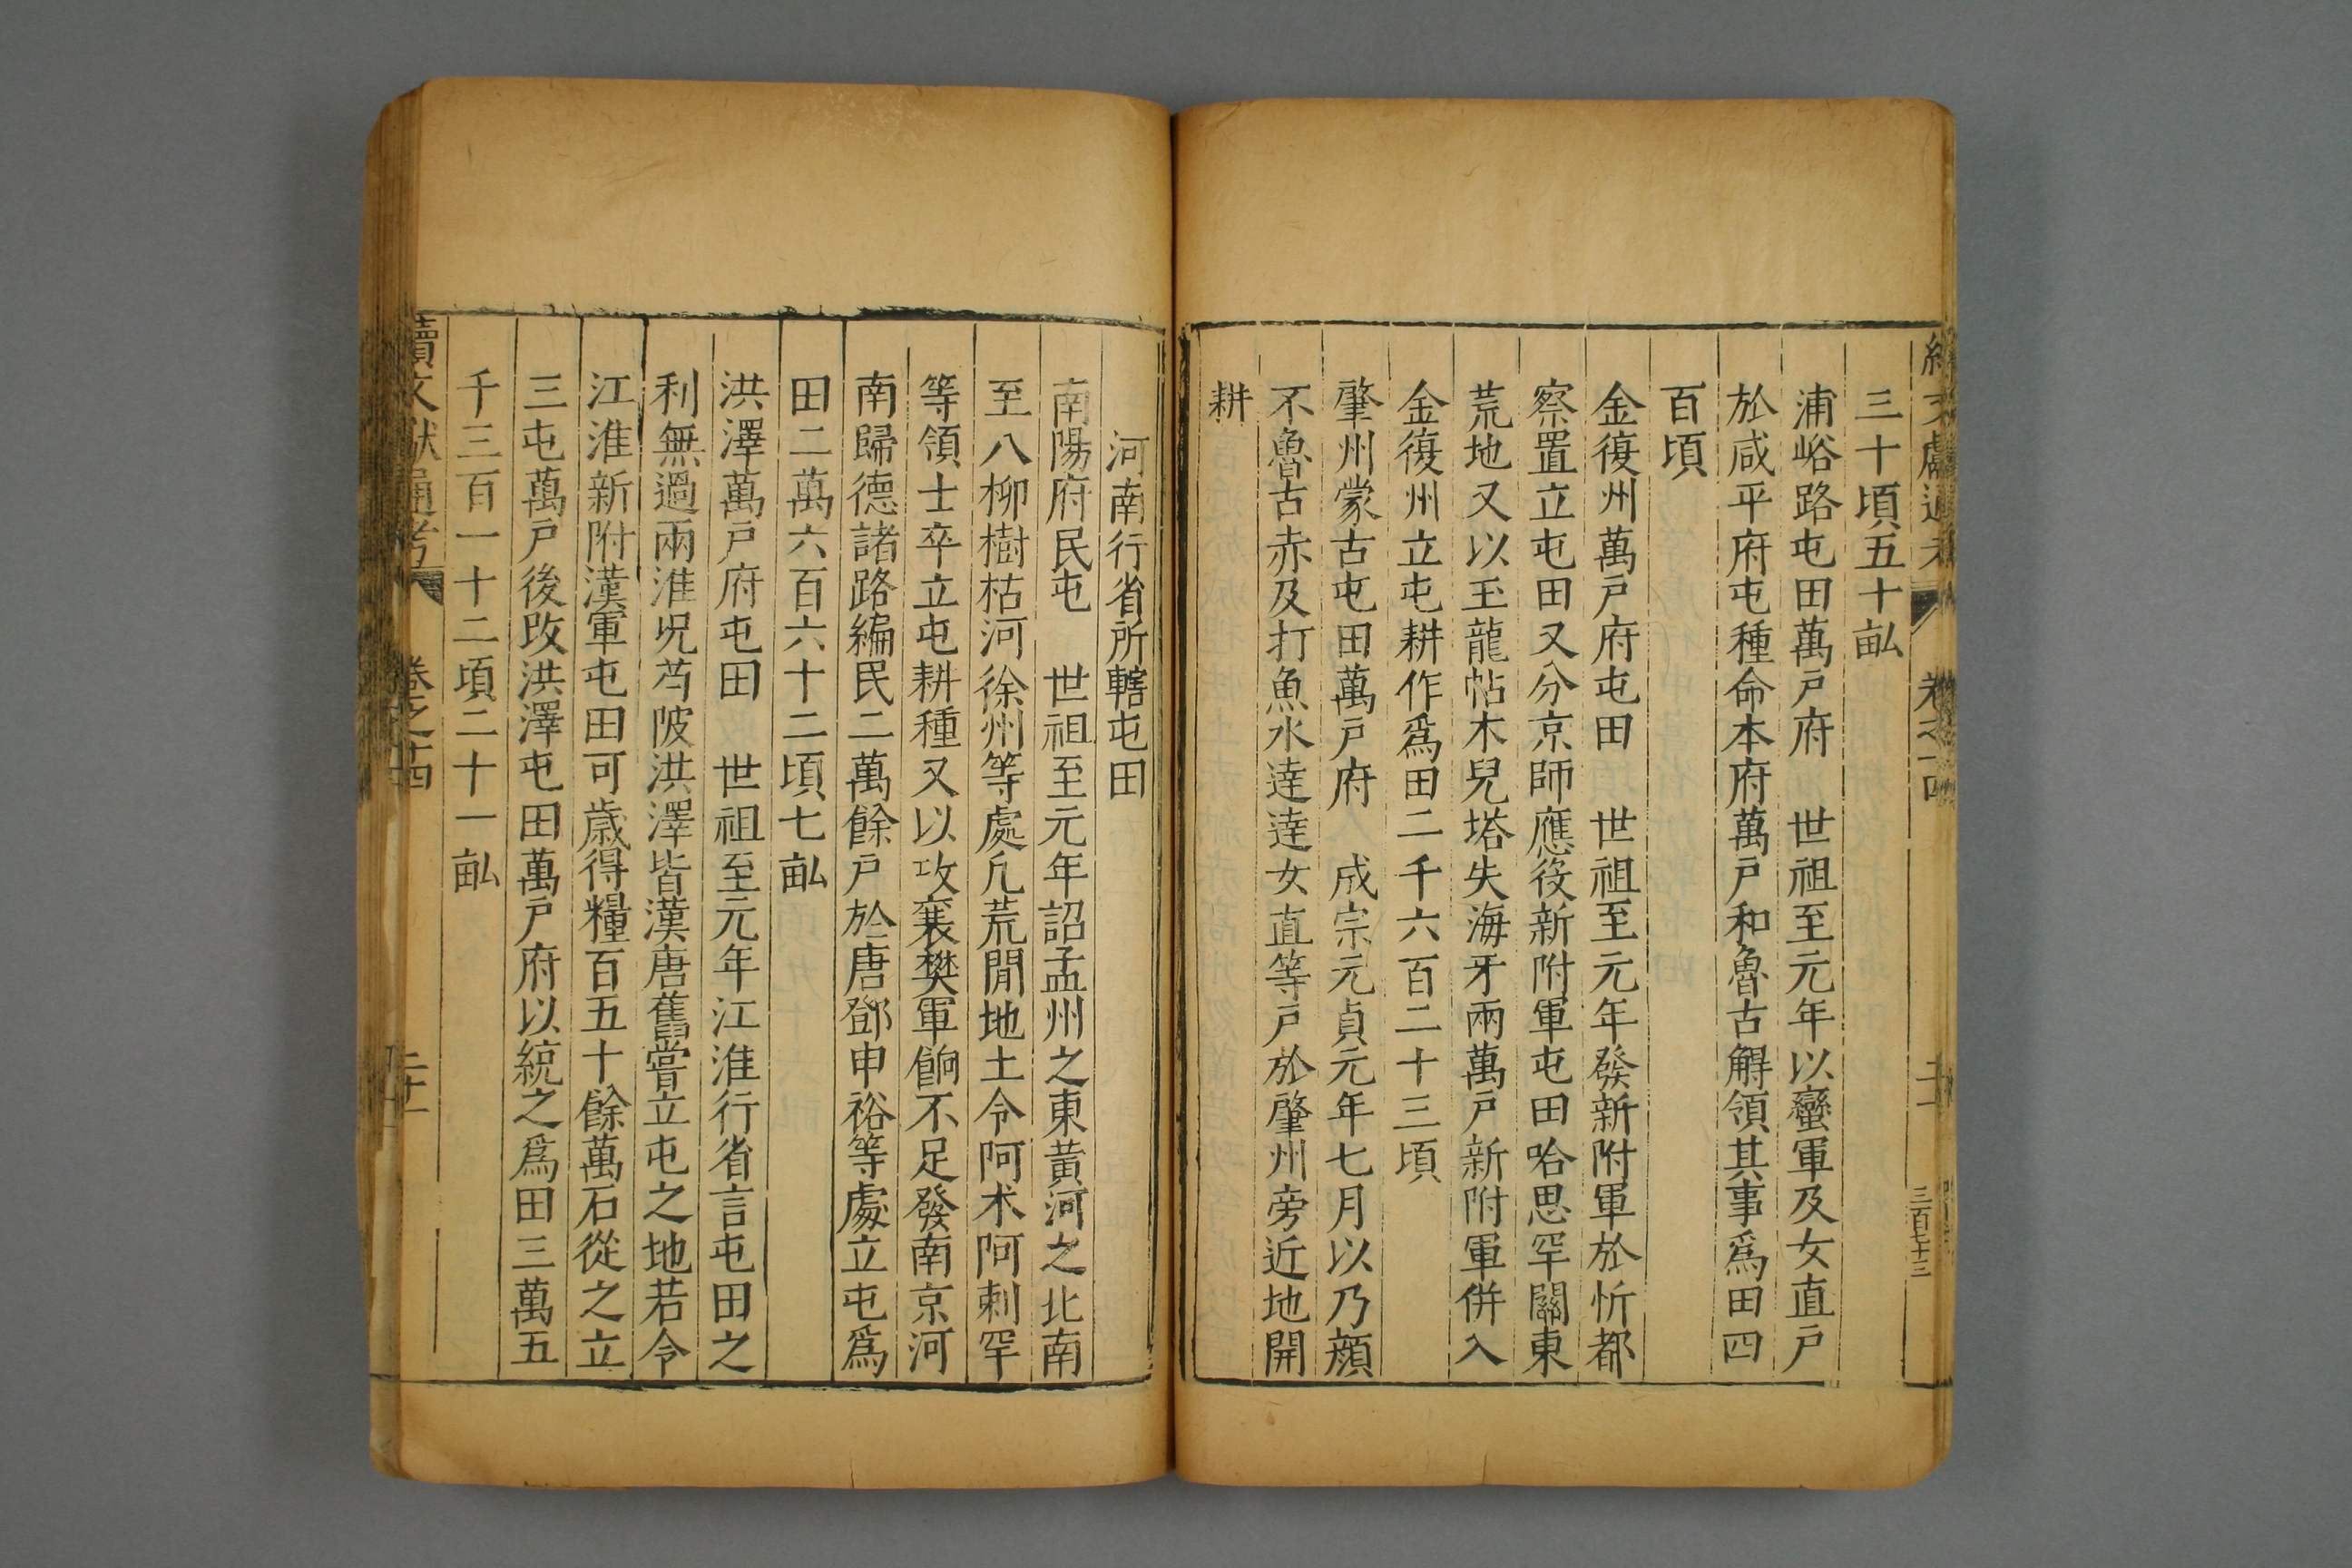 三十頃五十畝
浦峪路屯田萬戶府　世祖至元年以蠻軍及女直戶
於咸平府屯種命本府萬戶和魯古觧領其事爲田四
百頃
金復州萬戶府屯田　世祖至元年發新附軍於忻都
察置立屯田又分京師應役新附軍屯田哈思罕關東
荒地又以玉龍帖木兒塔失海牙兩萬戶新附軍併入
金復州立屯耕作爲田二千六百二十三頃
肇州蒙古屯田萬戶府　成宗元貞元年七月以乃顏
不魯古赤及打魚水達達女直等戶於肇州旁近地開
耕
河南行省所轄屯田
南陽府民屯　世祖至元年詔孟州之東黃河之北南
至八柳樹枯河徐州等處凡荒閒地土令阿术阿剌罕
等領士卒立屯耕種又以攻襄樊軍餉不足發南京河
南歸德諸路編民二萬餘戶於唐鄧申裕等處立屯爲
田二萬六百六十二頃七畝
洪澤萬戶府屯田　世祖至元年江淮行省言屯田之
利無過兩淮况芍陂洪澤皆漢唐舊嘗立屯之地若令
江淮新附漢軍屯田可歲得糧百五十餘萬石從之立
三屯萬戶後改洪澤屯田萬戶府以統之爲田三萬五
千三百一十二頃二十一畝
續文獻通考　卷之十四